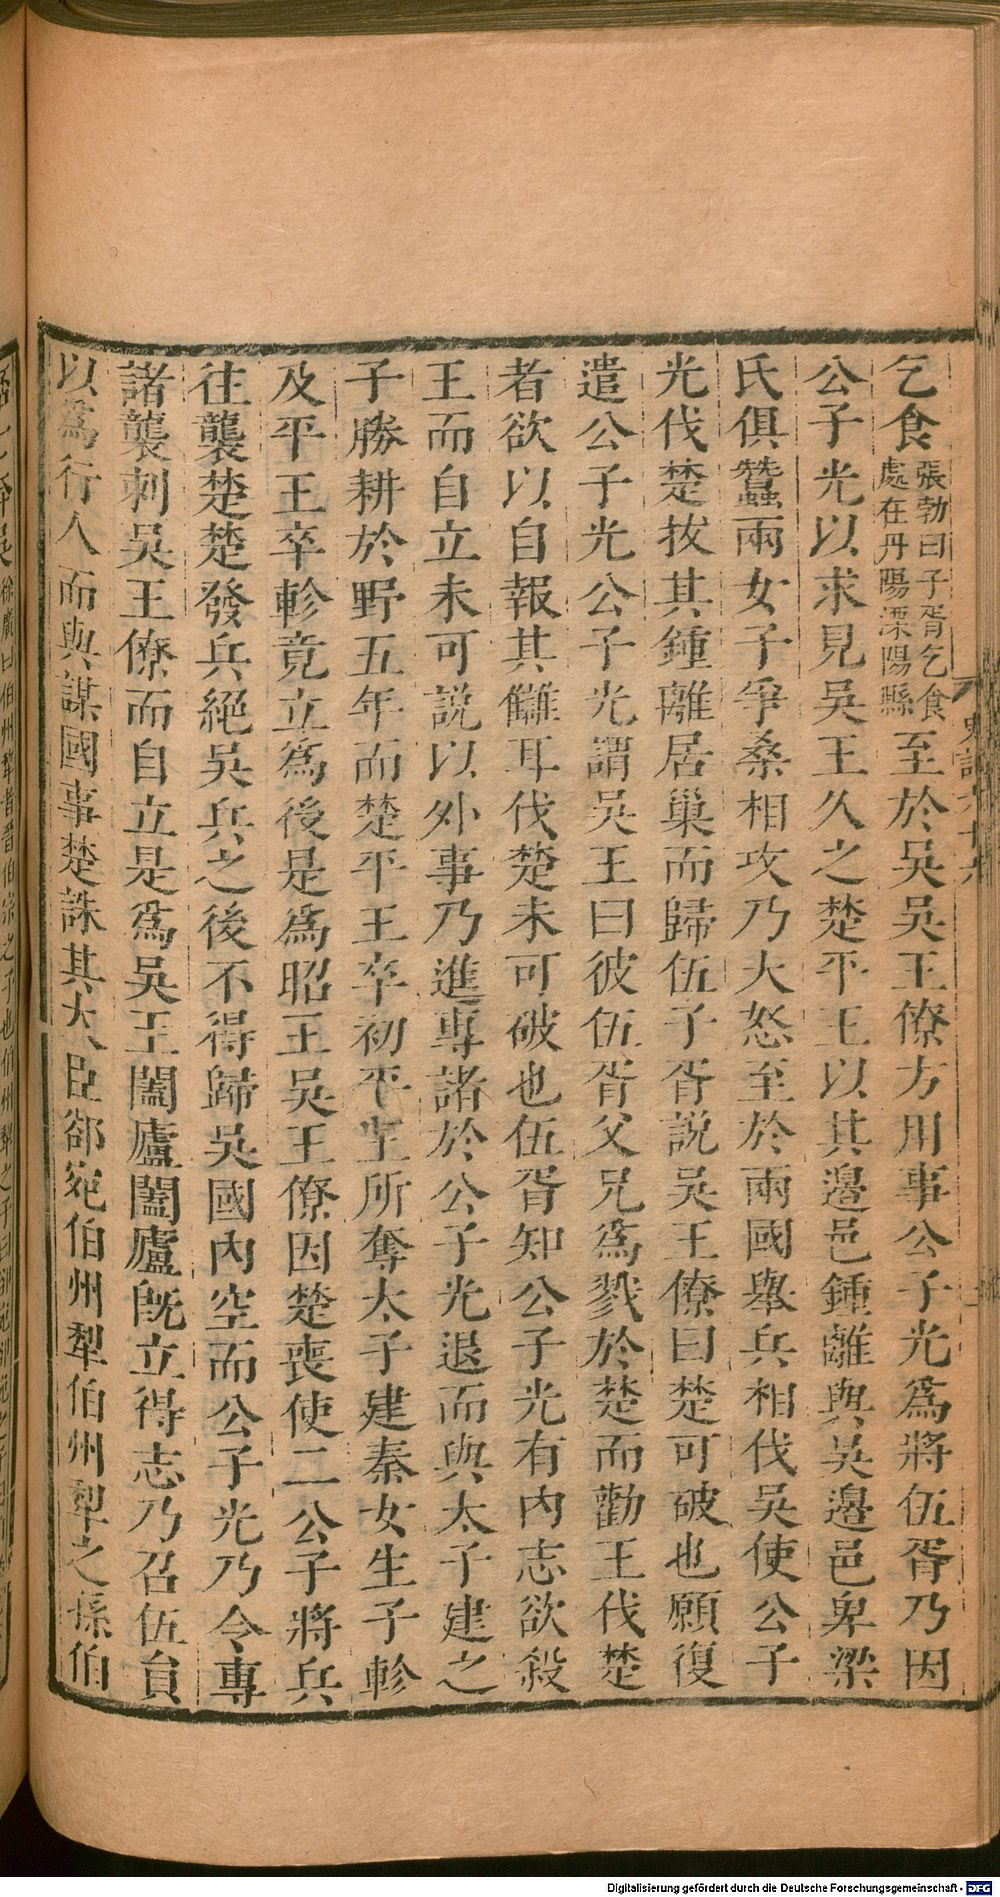 乞食張勃曰子胥乞食處在丹陽溧陽縣至於吳吳王僚方用事公子光爲將伍胥乃因
公子光以求見吳王久之楚平王以其邊邑鍾離與吳邊邑卑梁
氏俱蠶兩女子爭桑相攻乃大怒至於兩國舉兵相伐吳使公子
光伐楚拔其鍾離居巢而歸伍子胥說吳王僚曰楚可破也願復
遣公子光公子光謂吳王曰彼伍胥父兄爲戮於楚而勸王伐楚
者欲以自報其讎耳伐楚未可破也伍胥知公子光有內志欲殺
王而自立未可說以外事乃進專諸於公子光退而與太子建之
子勝耕於野五年而楚平王卒初平王所奪太子建秦女生子軫
及平王卒軫竟立爲後是爲昭王吳王僚因楚喪使二公子將兵
往襲楚楚發兵絕吳兵之後不得歸吳國內空而公子光乃令專
諸襲刺吳王僚而自立是爲吳王闔廬闔廬既立得志乃召伍員
以爲行人而與謀國事楚誅其大臣郤宛伯州犁伯州犁之孫伯
Digitalisierung gefördert durch die Deutsche Forschungsgemeinschaft - DFG